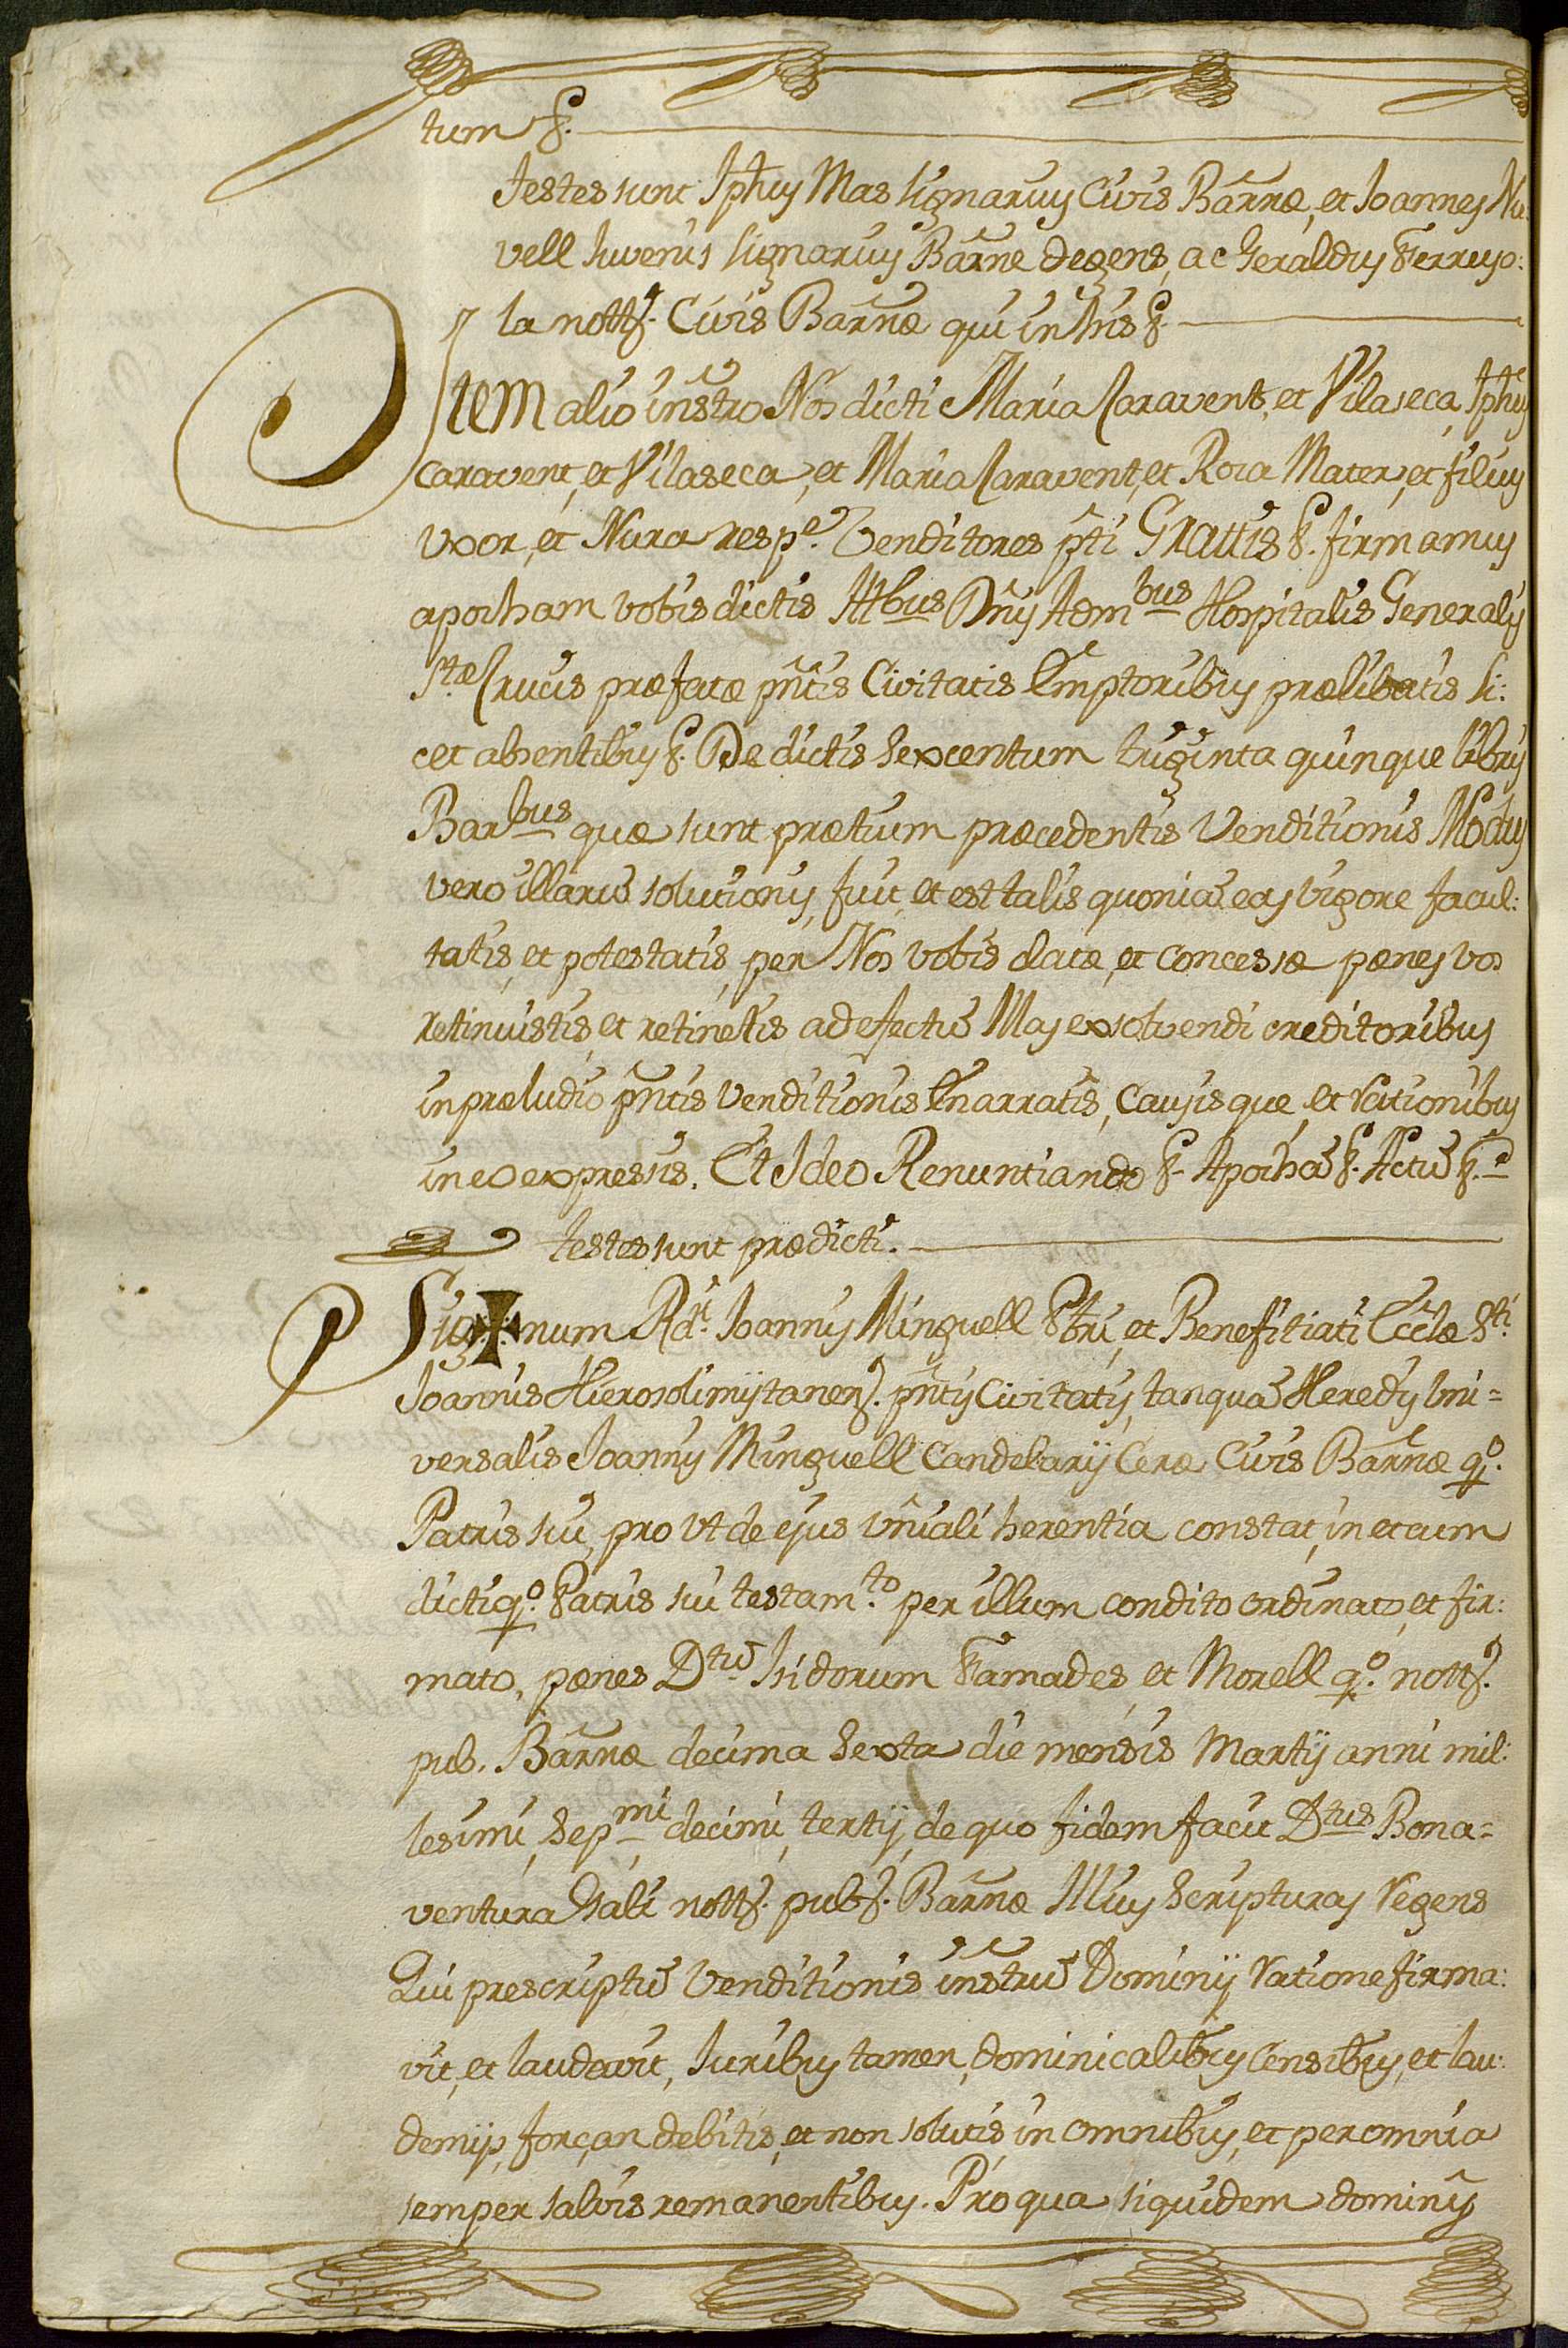 tum &.
testes sunt Jphus Mas lignarius Civis Barñæ, et Joannes No:
vell Juvenis lignarius Barñe degens, ac Geraldus Ferrusso:
la nottŝ. Civis Barñæ qui in his &.
Item alio inŝtro Nos dicti Maria Caravent, et Vilaseca, Jphus
caravent, et Vilaseca, et Maria Caravent, et Roca Mater, et filius
Uxor, et Nura respe. Venditores p̂ti Gratis &. firmamus
apocham vobis dictis Illbus Dñis Admbus Hospitalis Generalis
Stæ Crucis præfatæ pñtis Civitatis Emptoribus prælibatis li:
cet absentibus &. De dictis sexcentum triginta quinque libris
Barbus quæ sunt prætium præcedentis Venditionis Modus
vero illarũ solutionis, fuit, et est talis quoniã eas vigore facul:
tatis, et potestatis, per Nos vobis datæ, et concessæ pænes vos
retinuistis, et retinetis ad efectũ illas exsolvendi creditoribus
in præludio pñtis Venditionis Enarratis, causisque, et rationibus
in eo expressis. Et Ideo Renuntiando &. Apochã &. Actũ &.
testes sunt prædicti.
Sig✠num Rdi. Joannis Minguell Pbri, et Benefitiati Ecclæ Sti.
Joannis Hierosolimijtanens. pñtis Civitatis, tanquã Heredis Uni=
versalis Joannis Minguell Candelarij Ceræ Civis Barñæ qo.
Patris sui, pro Vt de ejus Uñiali herentia constat, in et cum
dicti qo. Patris sui testamto. per illum condito ordinato, et fir:
mato, pænes Dtũ Isidorum Famades et Morell qo. nottŝ.
pub. Barñæ decima sexta die mensis Martij anni mil:
lesimi, sepmi decimi, tertij, de quo fidem facit Dtus Bona=
ventura Galí nottŝ. pubŝ. Barñæ Illius scripturas Regens
Qui prescriptũ Venditionis inŝtrũ Dominij ratione firma:
vit, et laudavit, Juribus tamen, dominicalibus Censibus, et lau:
demijs, forçan debitis, et non solutis, in omnibus, et per omnia
semper salvis remanentibus. Pro qua siquidem dominij